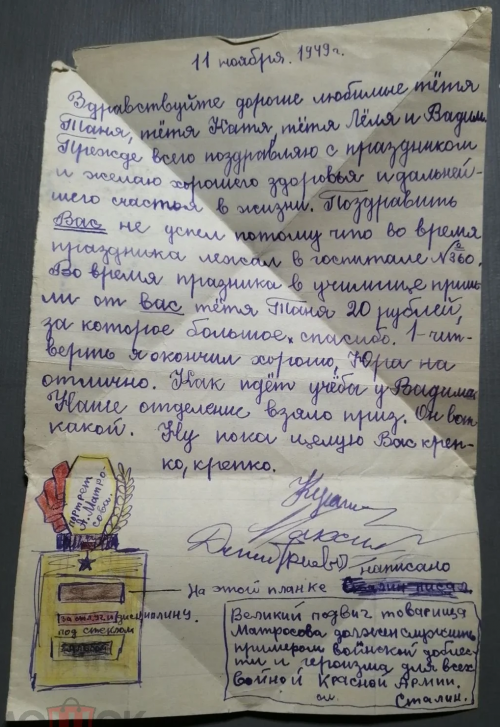 11 ноября. 1949г.
Здравствуйте дорогие любимые тётя
Таня, тётя Катя, тётя Лёля и Вадим.
Прежде всего поздравляю с праздником
и желаю хорошего здоровья и дальней-
шего счастья в жизни. Поздравить
Вас не успел потому что во время
праздника лежал в госпитале № 360.
Во время празника в училище приш-
ли от вас тётя Таня 20 рублей,
за которое большое спасибо. 1-чет-
верть я окончил хорошо, Юра на
отлично. Как идёт учёба у Вадима.
Наше отделение взяло приз. Он вот
какой. Ну пока целую Вас креп-
ко, крепко.
портрет
А. Матро-
сова.
На этой планке написано
за дисциплину.
под стеклом
Великий подвиг товарища
Матросова должен служить
примером воинской доблес-
ти и героизма для всех
войной Красной Армии.
Сталин.